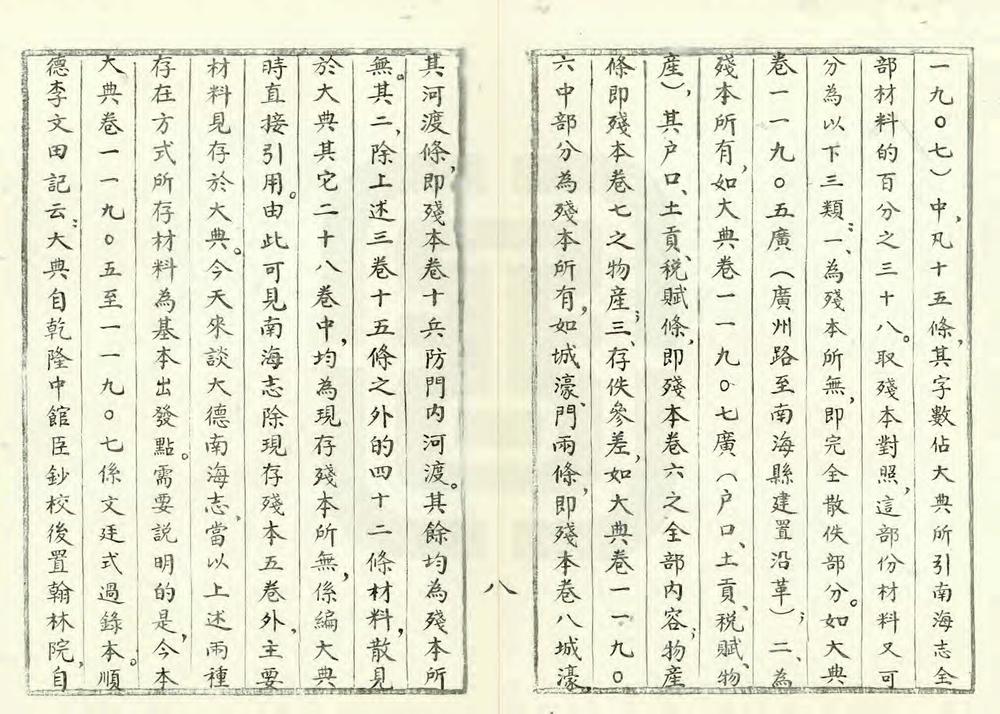 一九〇七）中，凡十五條，其字數佔大典所引南海志全
部材料的百分之三十八。取殘本對照，這部份材料又可
分為以下三類：一、為殘本所無，即完全散佚部分。如大典
卷一一九〇五廣（廣州路至南海縣建置沿革）；二、為
殘本所有，如大典卷一一九〇七廣（户口、土貢、税賦、物
產），其户口、土貢、税賦條，即殘本卷六之全部内容；物產
條即殘本卷七之物產；三、存佚參差，如大典卷一一九〇
六中部分為殘本所有，如城濠、門兩條，即殘本卷八城濠，
八
其河渡條，即殘本卷十兵防門内河渡。其餘均為殘本所
無。其二，除上述三卷十五條之外的四十二條材料，散見
於大典其它二十八卷中，均為現存殘本所無，係編大典
時直接引用。由此可見南海志除現存殘本五卷外，主要
材料見存於大典。今天來談大德南海志，當以上述兩種
存在方式所存材料為基本出發點。需要説明的是，今本
大典卷一一九〇五至一一九〇七係文廷式過錄本。順
德李文田記云：大典自乾隆中館臣鈔校後置翰林院，自